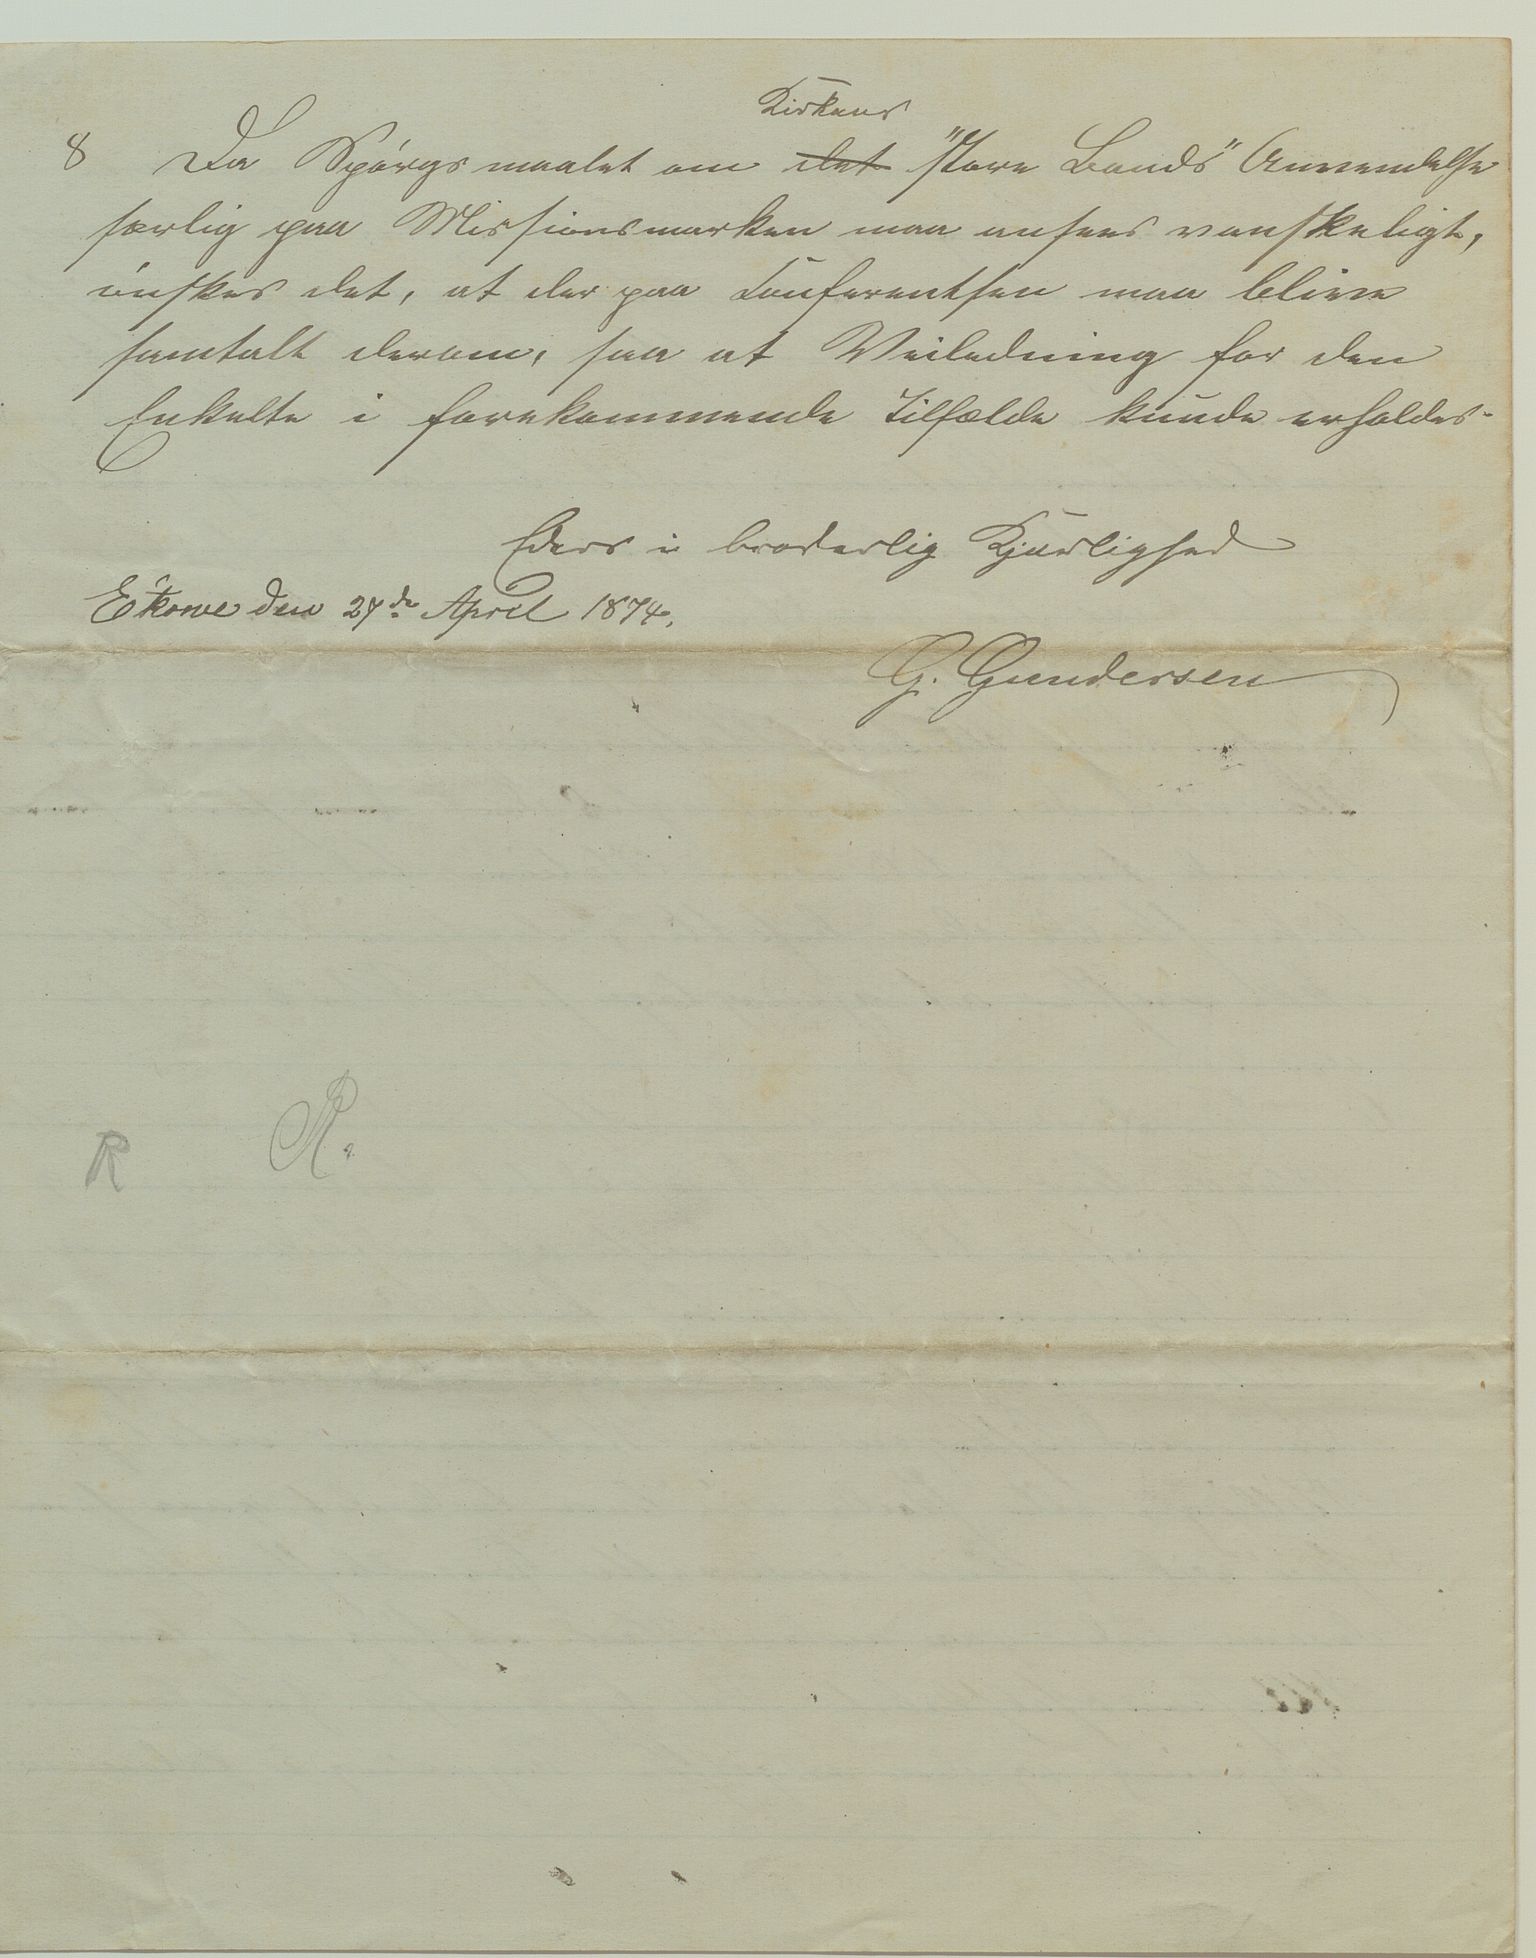 Kirkens
8 Da Spørgsmaalet om det "store Bands" Anvendelse
særlig paa Missionsmarken maa ansees vanskeligt,
ønskes det, at der paa Conferentsen maa blive
samtalt derom, saa at Veiledning for den
Enkelte i forekommende Tilfælde kunde erholdes.
Eders i broderlig Kjærlighed
Ekowe den 27de April 1874.
G. Gundersen
R R.